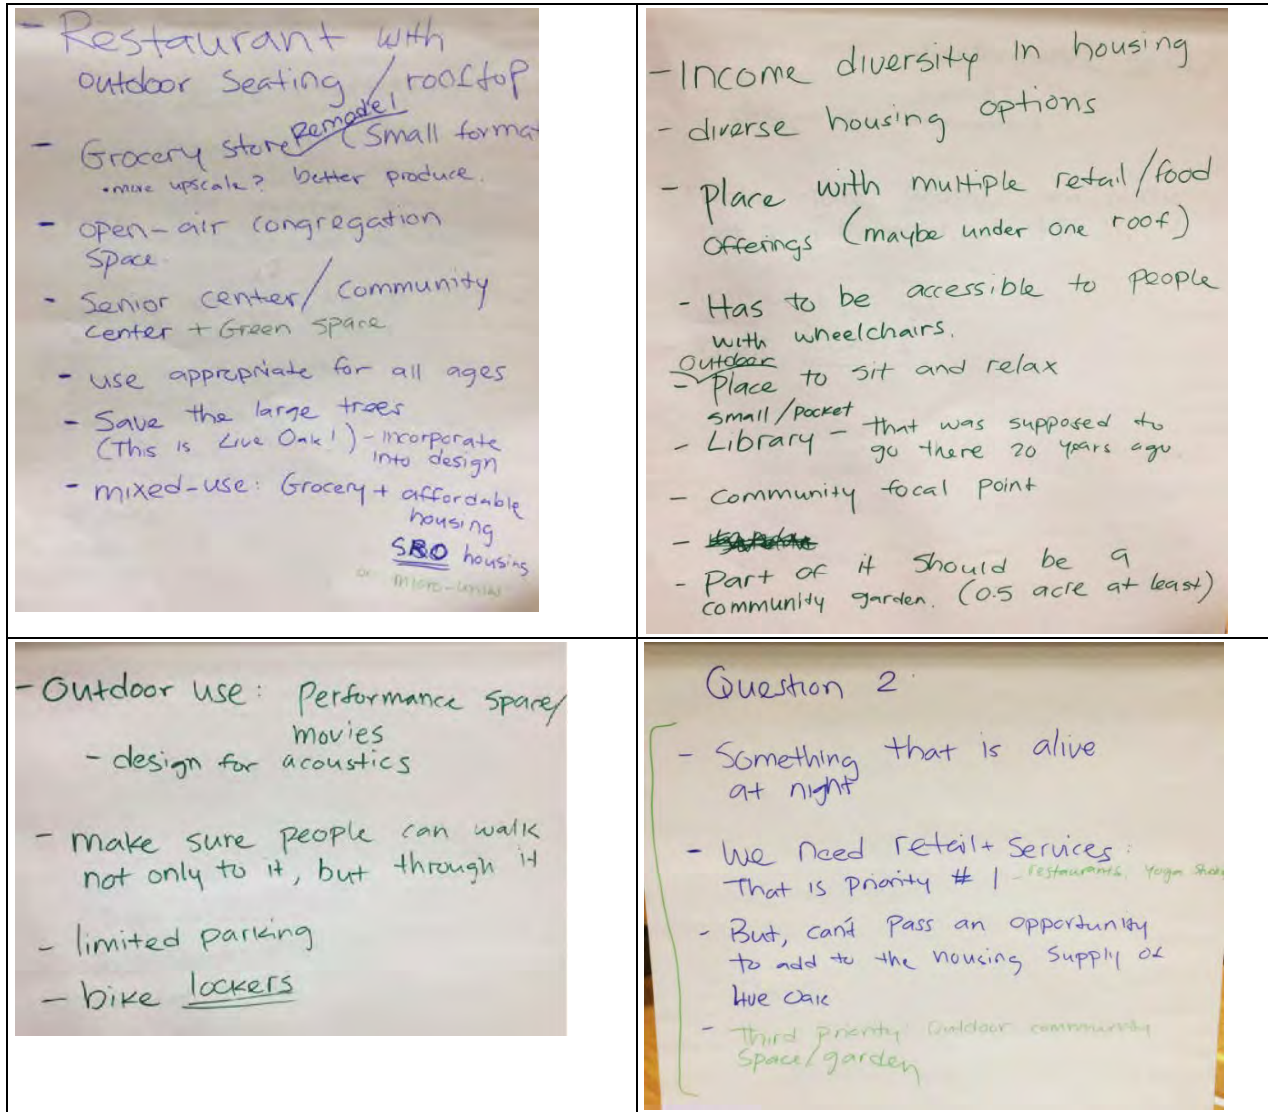 - Restaurant with
outdoor seating / rooftop
- Grocery store Remodel (Small format
• more upscale? better produce.
- open-air congregation
space.
- Senior center / community
center + Green space
- use appropriate for all ages
- Save the large trees
(This is Live Oak!) - incorporate
into design
- mixed-use: Grocery + affordable
housing
SRO housing
or micro-units
- Income diversity in housing
- diverse housing options
- Place with multiple retail/food
offerings (maybe under one roof)
- Has to be accessible to people
with wheelchairs.
Outdoor
- Place to sit and relax
small/pocket
- Library - that was supposed to
go there 20 years ago
- Community focal point
-
- Part of it should be a
community garden. (0.5 acre at least)
- Outdoor use: Performance space/
movies
- design for acoustics
- make sure people can walk
not only to it, but through it
- limited parking
- bike lockers
Question 2
- Something that is alive
at night
- We need retail + services:
That is priority #1 - restaurants, yoga
- But, can't pass an opportunity
to add to the housing supply of
Live Oak
- Third priority Outdoor community
space/garden